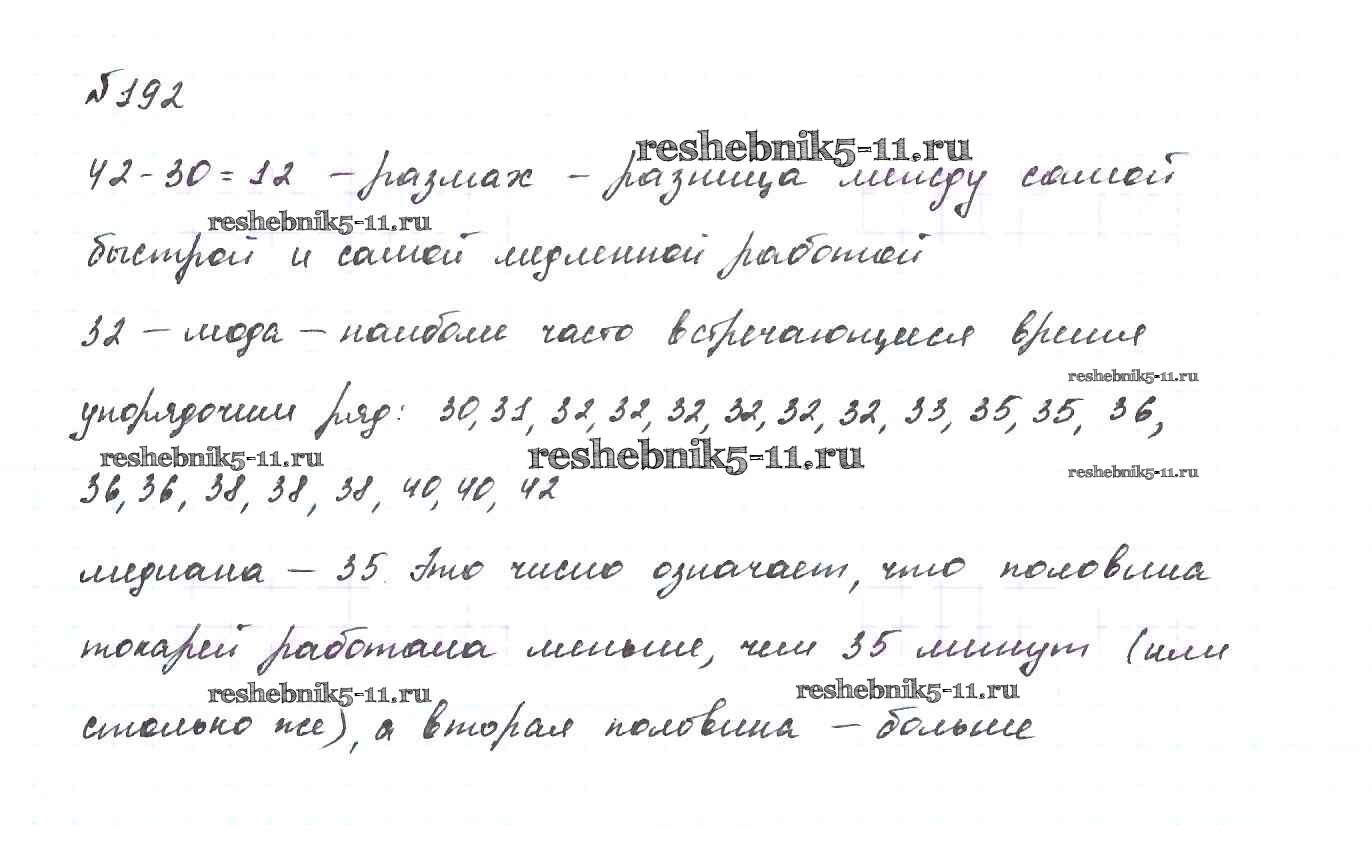 №192
reshebnik5-11.ru
42-30=12 – размах – разница между самой
reshebnik5-11.ru
быстрой и самой медленной работой
32 – мода – наиболее часто встречающееся время
reshebnik5-11.ru
упорядочим ряд: 30, 31, 32, 32, 32, 32, 32, 32, 33, 35, 35, 36,
reshebnik5-11.ru reshebnik5-11.ru reshebnik5-11.ru
36, 36, 38, 38, 38, 40, 40, 42
медиана – 35. Это число означает, что половина
токарей работала меньше, чем 35 минут (или
reshebnik5-11.ru reshebnik5-11.ru
столько же), а вторая половина – больше